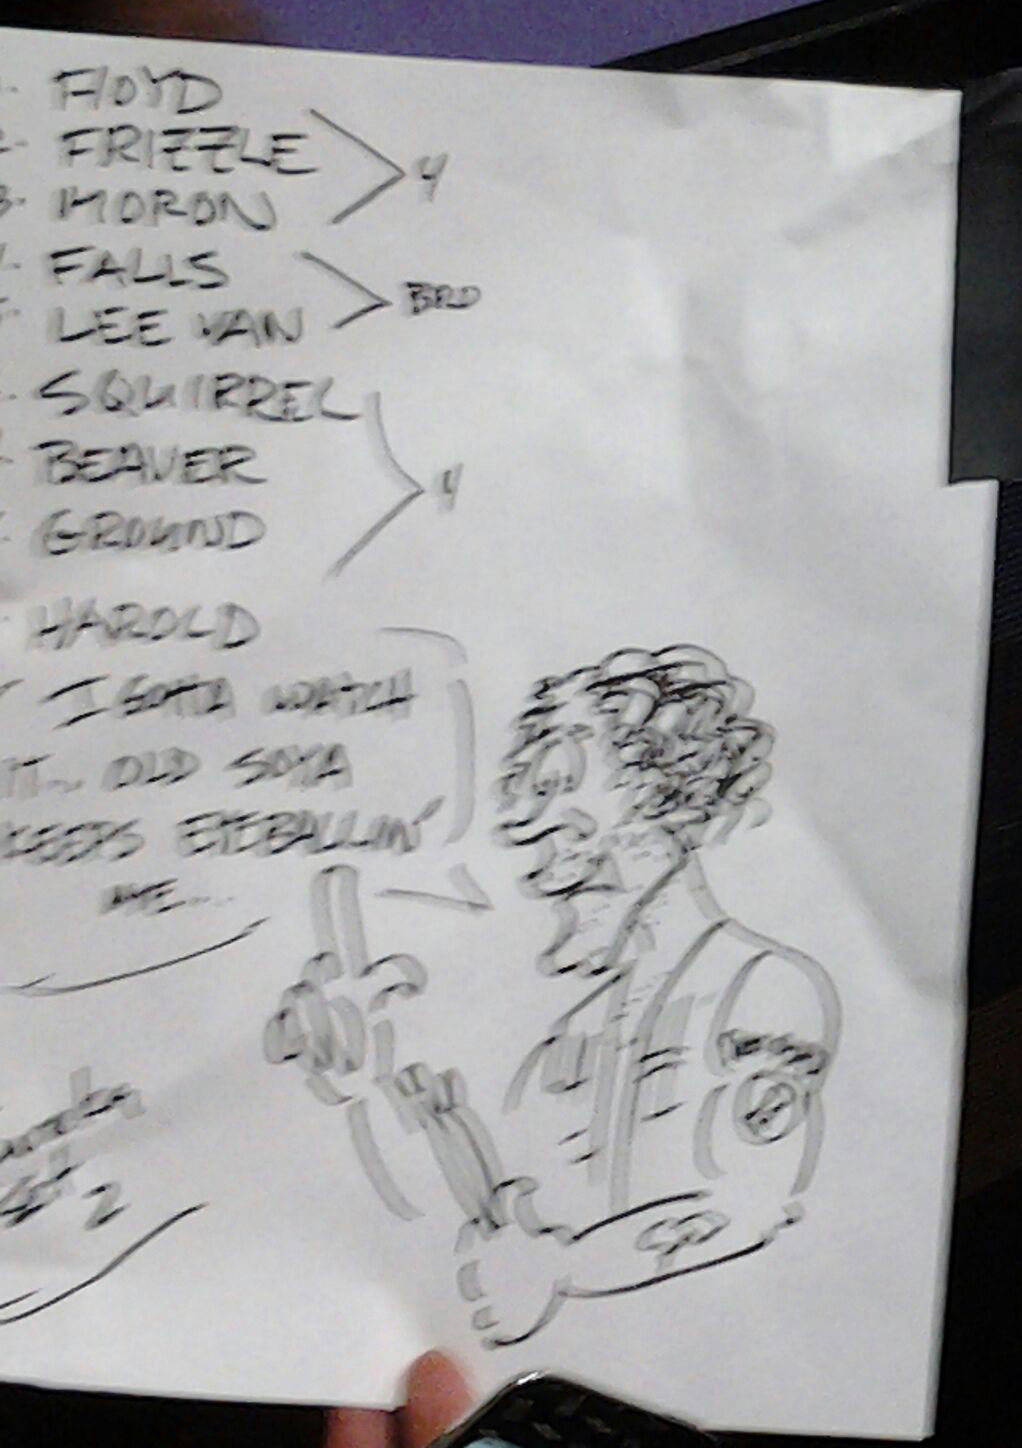 FLOYD
FRIZZLE
4
MORON
FALLS
BRD
LEE VAN
SQUIRREL
BEAVER
4
GROUND
HAROLD
I GOTTA WATCH
IT... OLD SOYA
KEEPS EYEBALLIN'
ME...
2